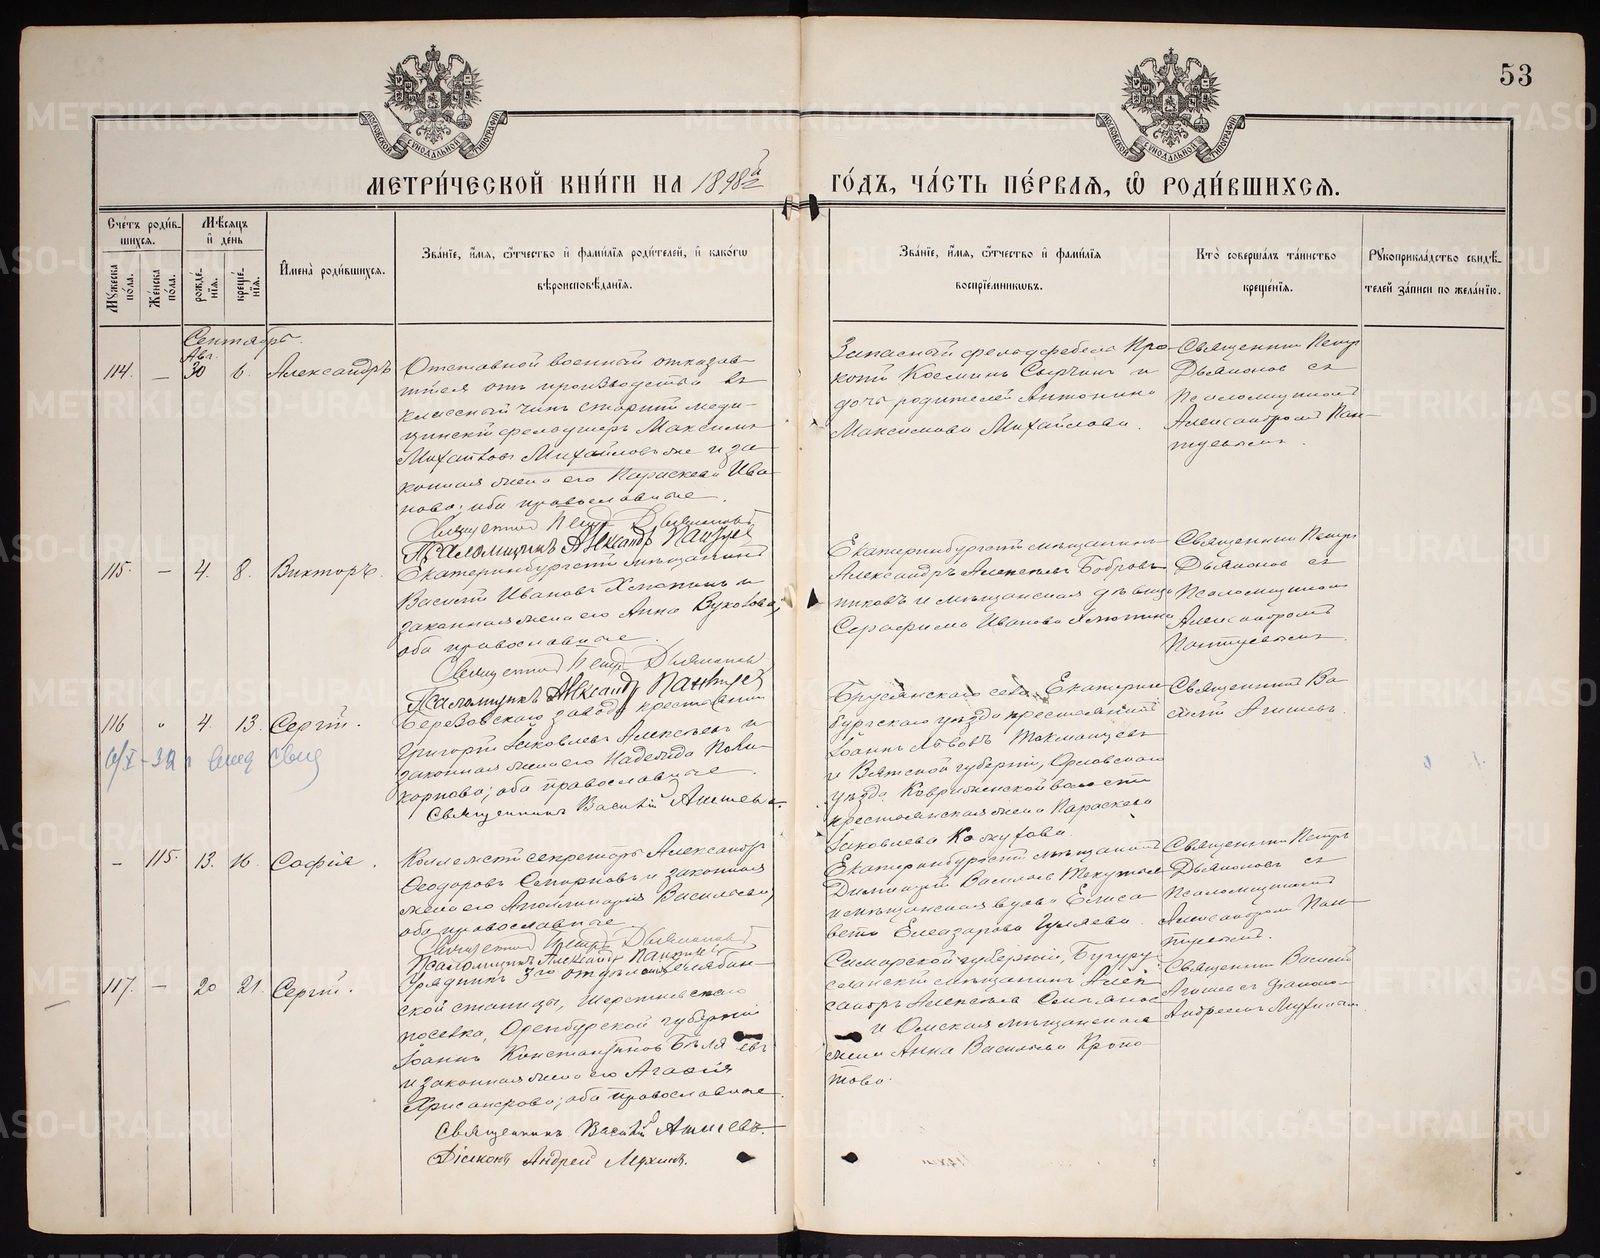 53
МОСКОВСКОЙ СѴНОДАЛЬНОЙ ТИПОГРАФІИ
МОСКОВСКОЙ СѴНОДАЛЬНОЙ ТИПОГРАФІИ
МЕТРИ́ЧЕСКОЙ КНИ́ГИ НА 1898й
ГО́ДЪ, ЧА́СТЬ ПЕ́РВАЯ, Ѡ҆ РОДИ́ВШИХСЯ.
Сче́тъ роди́в-
шихся.
Мꙋжеска по́ла.
Же́нска по́ла.
Мѣ́сяцъ
и҆ де́нь
рожде́нїя.
креще́нїя.
И҆мена̀ роди́вшихся.
Зва́нїе, и҆́мя, ѻ҆́тчество и҆ фами́лїя роди́телей, и҆ како́гѡ
вѣроисповѣ́данїя.
Зва́нїе, и҆́мя, ѻ҆́тчество и҆ фами́лїя
воспрїе́мникѡвъ.
Кто̀ соверша́лъ та́инство
креще́нїя.
Рꙋкоприкла́дство свидѣ́-
телей за́писи по жела́нїю.
Сентябрь.
Авг.
114. — 30 6. Александръ
Отставной военный отказав-
шійся отъ производства въ
классный чинъ старшій меди-
цинскій фельдшеръ Максимъ
Михайловъ Михайловъ и за-
конная жена его Параскева Ива-
нова; оба православные.
Священникъ Петръ Дьяконовъ
Псаломщикъ Александръ Пантуевъ
Запасный фельдфебель Про-
копій Косминъ Сырчинъ и
дочь родителей Антонина
Максимова Михайлова.
Священникъ Петръ
Дьяконовъ съ
Псаломщикомъ
Александромъ Пан-
туевымъ.
115. — 4. 8. Викторъ.
Екатеринбургскій мѣщанинъ
Василій Ивановъ Хлопинъ и
законная жена его Анна Вуколова;
оба православные.
Священникъ Петръ Дьяконовъ
Псаломщикъ Александръ Пантуевъ
Екатеринбургскій мѣщанинъ
Александръ Алексѣевъ Бобров-
никовъ и мѣщанская дѣвица
Серафима Иванова
Священникъ Петръ
Дьяконовъ съ
Псаломщикомъ
Александромъ
Пантуевымъ.
116 „ 4. 13. Сергій.
Березовскаго завода крестьянинъ
Григорій Іаковлевъ Алексѣевъ и
законная жена его Надежда Поли-
карпова; оба православные.
Священникъ Василій Агишевъ.
Брусянскаго села, Екатерин-
бургскаго уѣзда крестьянинъ
Іоаннъ Львовъ Токманцевъ
и Вятской губерніи, Орловскаго
уѣзда волости
крестьянская жена Параскева
Іаковлева
Священникъ Ва-
силій Агишевъ.
— 115. 13. 16. Софія.
Коллежскій секретарь Александръ
Ѳеодоровъ и законная
жена его Аполлинарія Васильева;
оба православные
Священникъ Петръ Дьяконовъ
Псаломщикъ Александръ Пантуевъ
Екатеринбургскій мѣщанинъ
Димитрій Васильевъ
и мѣщанская вдова Елиса-
вета Елеазарова Гуляева.
Священникъ Петръ
Дьяконовъ съ
Псаломщикомъ
Александромъ Пан-
туевымъ.
117. — 20 21. Сергій.
Урядникъ 3го отдѣла Челябин-
ской станицы, Шершневскаго
поселка, Оренбургской губерніи
Іоаннъ Константиновъ Бѣляевъ
и законная жена его Агафія
Хрисанфова; оба православные.
Священникъ Василій Агишевъ.
Діаконъ Андрей Мухинъ.
Самарской губерніи, Бугуру-
сланскій мѣщанинъ Алек-
сандръ Алексѣевъ
и Омская мѣщанская
жена Анна Васильева Кропо-
това.
Священникъ Василій
Агишевъ съ діакономъ
Андреемъ Мухинымъ
METRIKI.GASO-URAL.RU